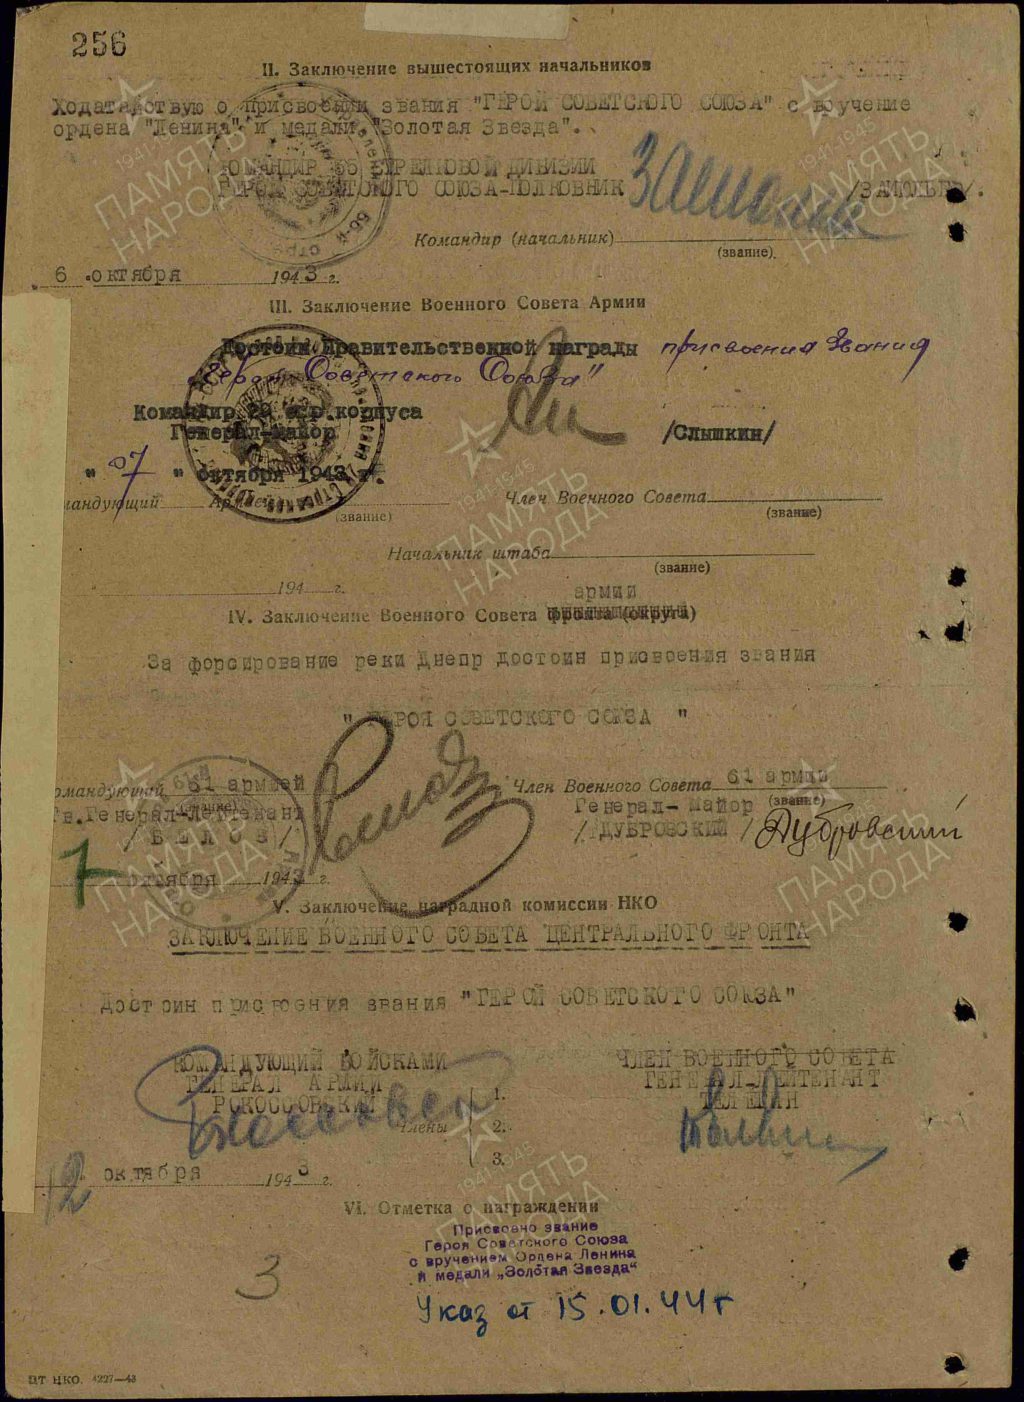 256
II. Заключение вышестоящих начальников
Ходатайствую о присвоении звания "ГЕРОЙ СОВЕТСКОГО СОЮЗА" с вручение
ордена "Ленина" и медали "Золотая Звезда".
КОМАНДИР 55 СТРЕЛКОВОЙ ДИВИЗИИ
ГЕРОЙ СОВЕТСКОГО СОЮЗА-ПОЛКОВНИК
Командир (начальник)
(звание).
6 октября 1943 г.
III. Заключение Военного Совета Армии
Достоин Правительственной награды присвоения Звания
"Герой Советского Союза"
Командир корпуса
Генерал-Майор /Слышкин/
" 07 " октября 1943 г.
мандующий Армией Член Военного Совета
(звание) (звание)
Начальник штаба
(звание)
194 г.
армии
IV. Заключение Военного Совета фронта (округа)
За форсирование реки Днепр достоин присвоения звания
" ГЕРОЯ СОВЕТСКОГО СОЮЗА "
омандующий 61 армией Член Военного Совета 61 армии
(звание) (звание)
Гв.Генерал-Лейтенант Генерал-Майор
/БЕЛОВ/ /ДУБРОВСКИЙ/ Дубровский
7 октября 1943 г.
V. Заключение наградной комиссии НКО
ЗАКЛЮЧЕНИЕ ВОЕННОГО СОВЕТА ЦЕНТРАЛЬНОГО ФРОНТА
Достоин присвоения звания "ГЕРОЙ СОВЕТСКОГО СОЮЗА"
КОМАНДУЮЩИЙ ВОЙСКАМИ ЧЛЕН ВОЕННОГО СОВЕТА
ГЕНЕРАЛ АРМИИ ГЕНЕРАЛ-ЛЕЙТЕНАНТ
РОКОССОВСКИЙ ТЕЛЕГИН
1.
Члены 2.
3.
12 октября 1943 г.
VI. Отметка о награждении
Присвоено звание
Героя Советского Союза
с вручением Ордена Ленина
и медали „Золотая Звезда"
3
Указ от 15.01.44г
ПТ НКО. 4227—43
1941-1945
ПАМЯТЬ
НАРОДА